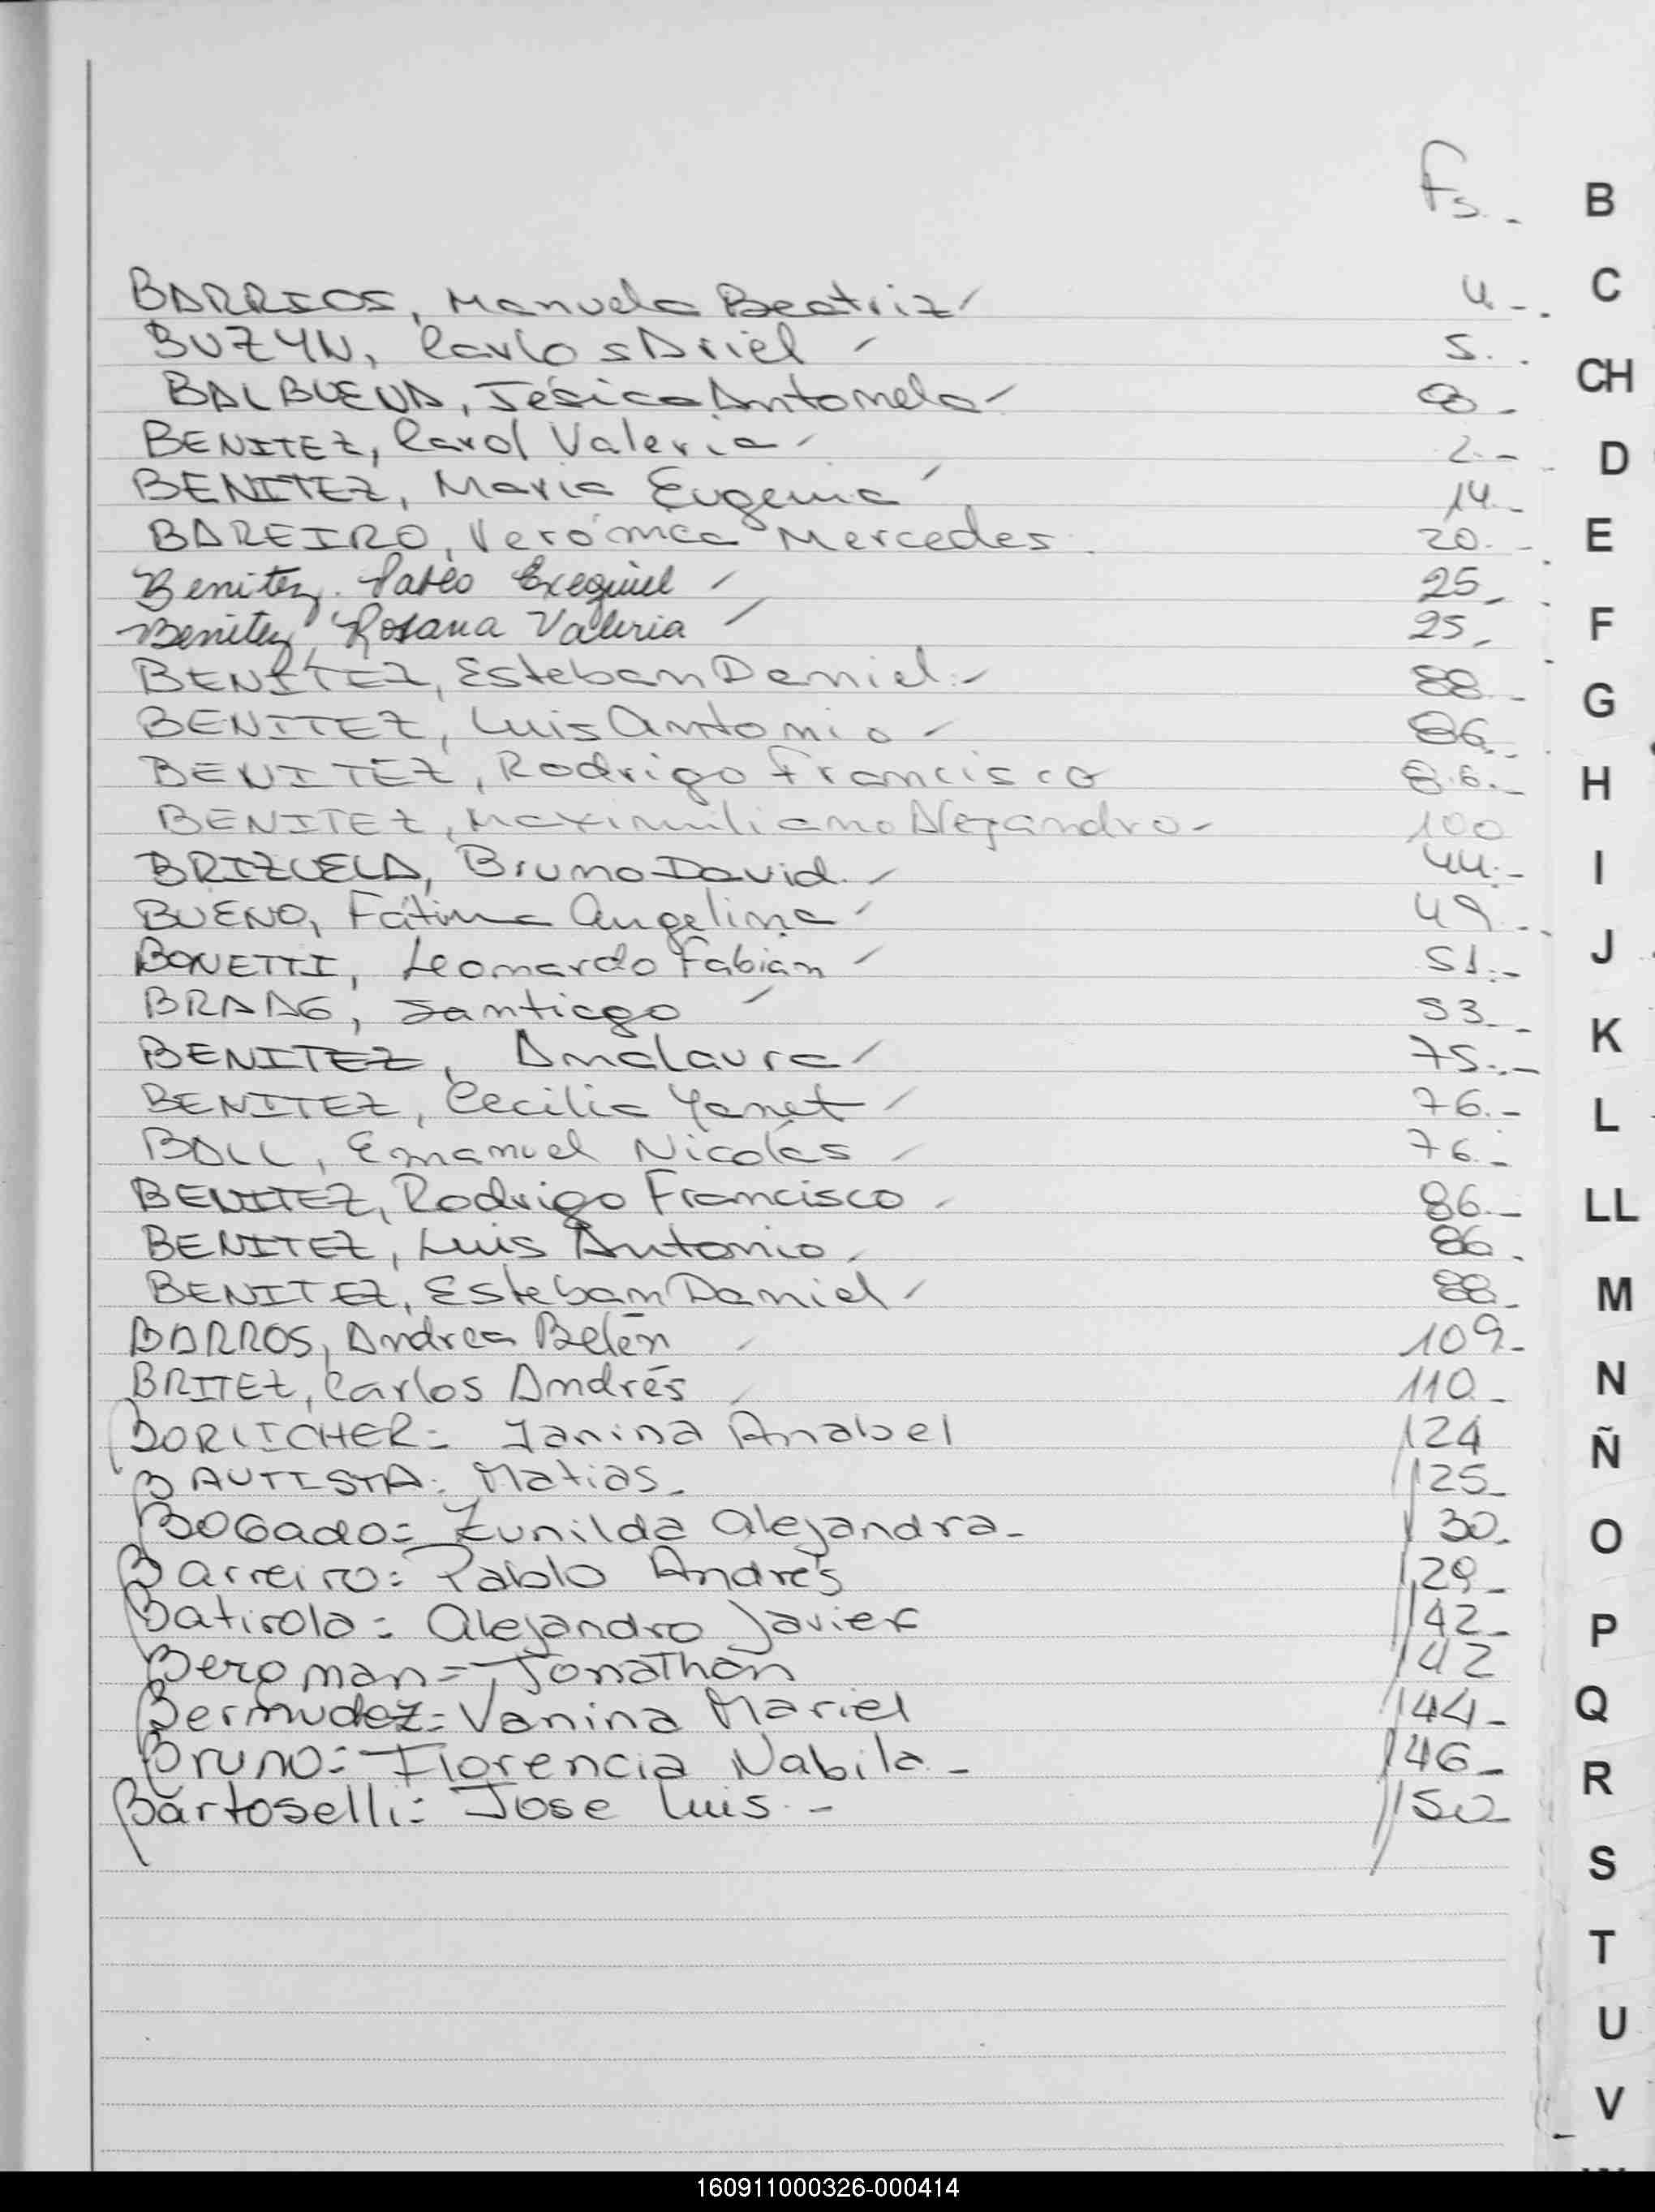 Fs.-
B
BARRIOS, Manuela Beatriz 4.-
C
BUZYN, Carlos Ariel 5.
CH
BALBUENA, Jésica Antonela 8.-
BENITEZ, Carol Valeria 2.-
D
BENITEZ, María Eugenia 14.-
BAREIRO, Verónica Mercedes. 20.-
E
Benitez. Pablo Exequiel 25-
Benitez, Rosana Valeria 25-
F
BENITEZ, Esteban Daniel.- 88.-
G
BENITEZ, Luis Antonio - 86.-
BENITEZ, Rodrigo Francisco 86.-
H
BENITEZ, Maximiliano Alejandro- 100
BRIZUELA, Bruno David. 44.-
I
BUENO, Fátima Angelina 49.-
BONETTI, Leonardo Fabián 51.-
J
BRAAG, Santiago 53.-
K
BENITEZ, Analaura 75.-
BENITEZ, Cecilia Yanet 76.-
L
BALL, Emanuel Nicolás 76.-
BENITEZ, Rodrigo Francisco 86.-
LL
BENITEZ, Luis Antonio 86.
BENITEZ, Esteban Daniel 88.-
M
BARROS, Andrea Belén 109.-
BRITEZ, Carlos Andrés 110.-
N
BORLICHER= Janina Anabel 124
Ñ
BAUTISTA: Matias. 125-
BOGado= Zunilda Alejandra- 130.
O
Barreiro: Pablo Andrés 129-
Batirola: Alejandro Javier 142-
P
Bergman= Jonathan 142
Bermudez= Vanina Mariel 144-
Q
Bruno: Florencia Nabila.- 146-
R
Bartoselli: Jose Luis.- 150
S
T
U
V
160911000326-000414